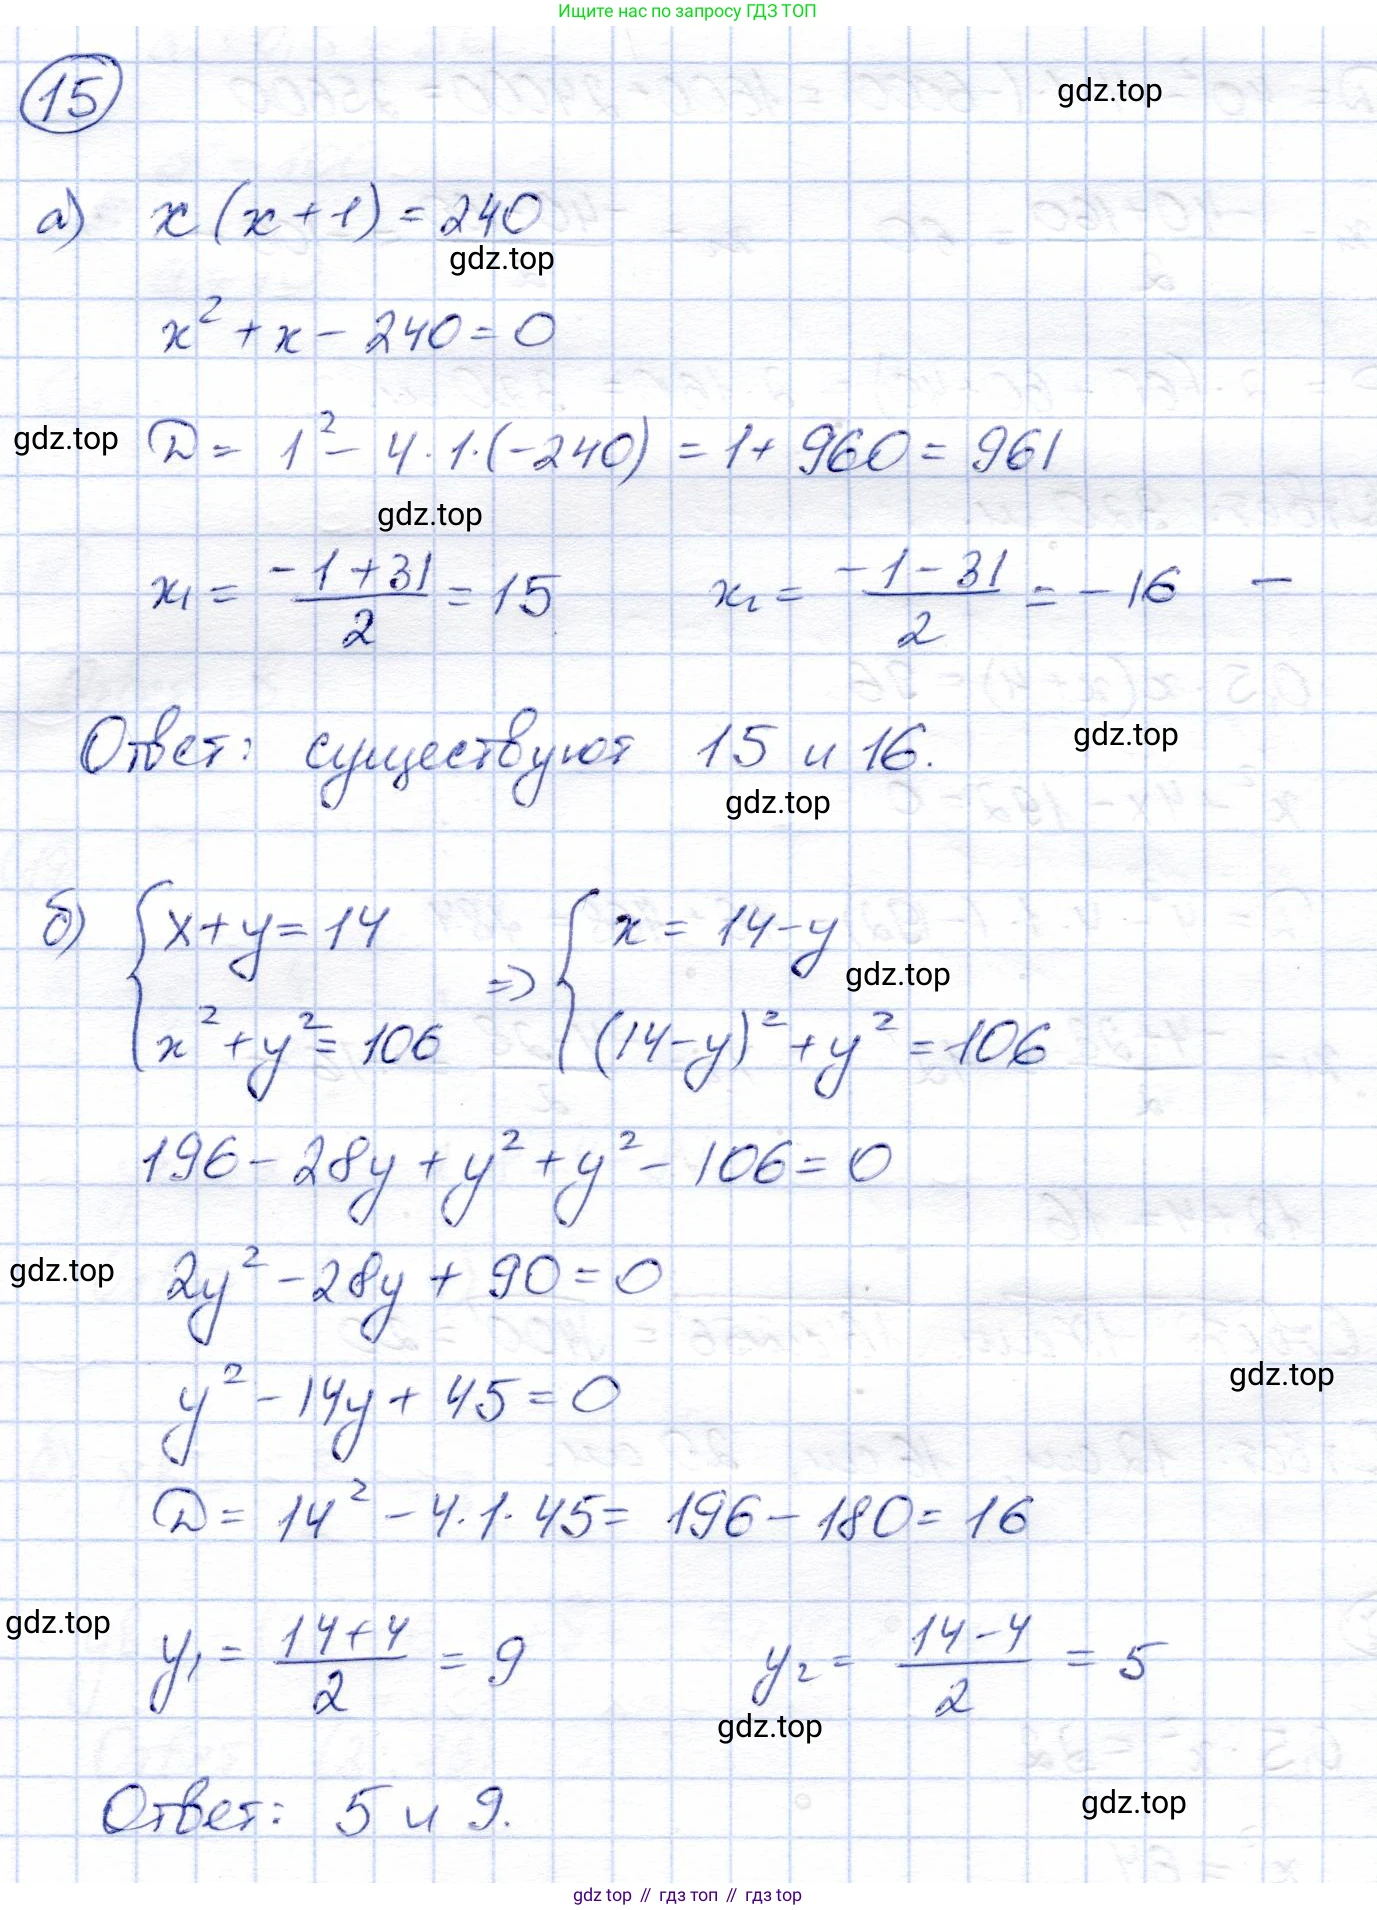 Ищите нас по запросу ГДЗ ТОП
15
gdz.top
а) x(x+1)=240
gdz.top
x²+x-240=0
gdz.top
D= 1²-4·1·(-240)=1+960=961
gdz.top
x₁= (-1+31)/2 =15 x₂= (-1-31)/2 = -16 –
Ответ: существуют 15 и 16.
gdz.top
gdz.top
б) {x+y=14 ⇒ {x=14-y
gdz.top
x²+y²=106 (14-y)²+y²=106
196-28y+y²+y²-106=0
gdz.top
2y²-28y+90=0
gdz.top
y²-14y+45=0
D= 14²-4·1·45= 196-180=16
gdz.top
y₁= (14+4)/2 = 9 y₂= (14-4)/2 = 5
gdz.top
gdz.top
Ответ: 5 и 9.
gdz top // гдз топ // гдз top